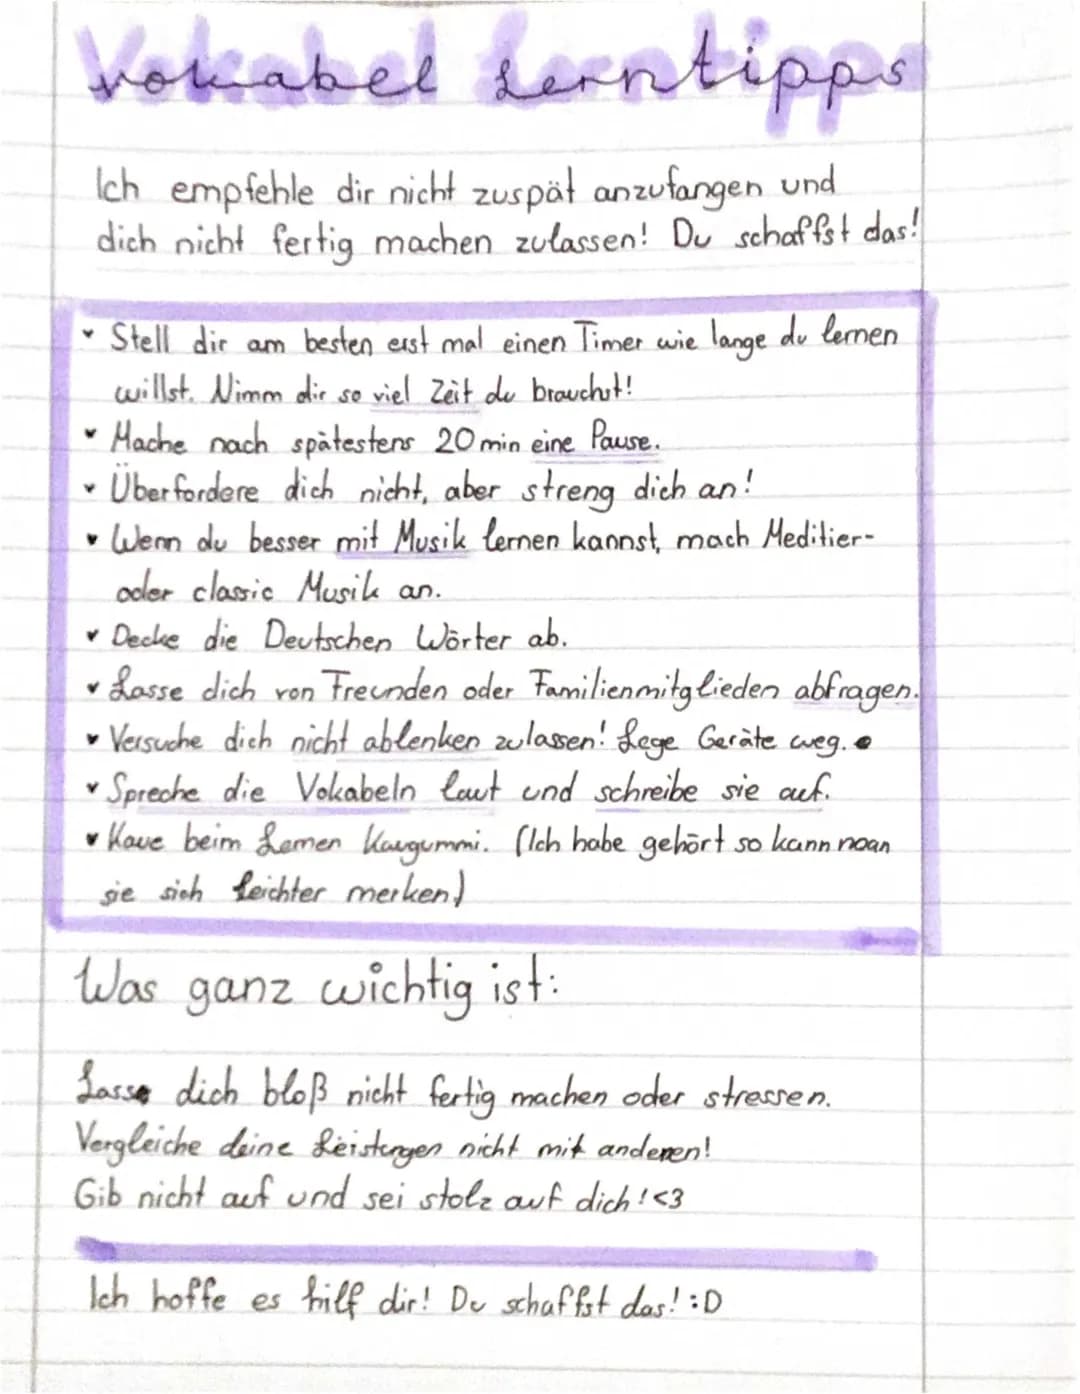 Vokabel Lerntipps
Ich empfehle dir nicht zuspät anzufangen und
dich nicht fertig machen zulassen! Du schaffst das!
Stell dir am besten erst mal einen Timer wie lange du lernen
willst. Nimm dir so viel Zeit du brauchst!
Mache nach spätestens 20 min eine Pause.
Überfordere dich nicht, aber streng dich an!
Wenn du besser mit Musik lernen kannst, mach Meditier-
oder classic Musik an.
Decke die Deutschen Wörter ab.
Lasse dich von Freunden oder Familienmitglieden abfragen.
Versuche dich nicht ablenken zulassen! Lege Geräte weg.
Spreche die Vokabeln laut und schreibe sie auf.
Kaue beim Lernen Kaugummi. (Ich habe gehört so kann man
sie sich leichter merken)
Was ganz wichtig ist:
Lasse dich bloß nicht fertig machen oder stressen.
Vergleiche deine Leistungen nicht mit anderen!
Gib nicht auf und sei stolz auf dich!<3
Ich hoffe es hilf dir! Du schaffst das! :D